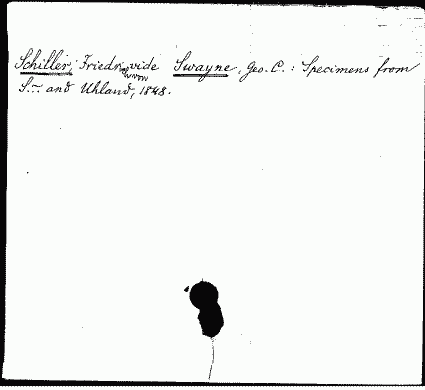 Schiller, Friedr. von vide Swayne, Geo. C.: Specimens from
S— and Uhland, 1848.